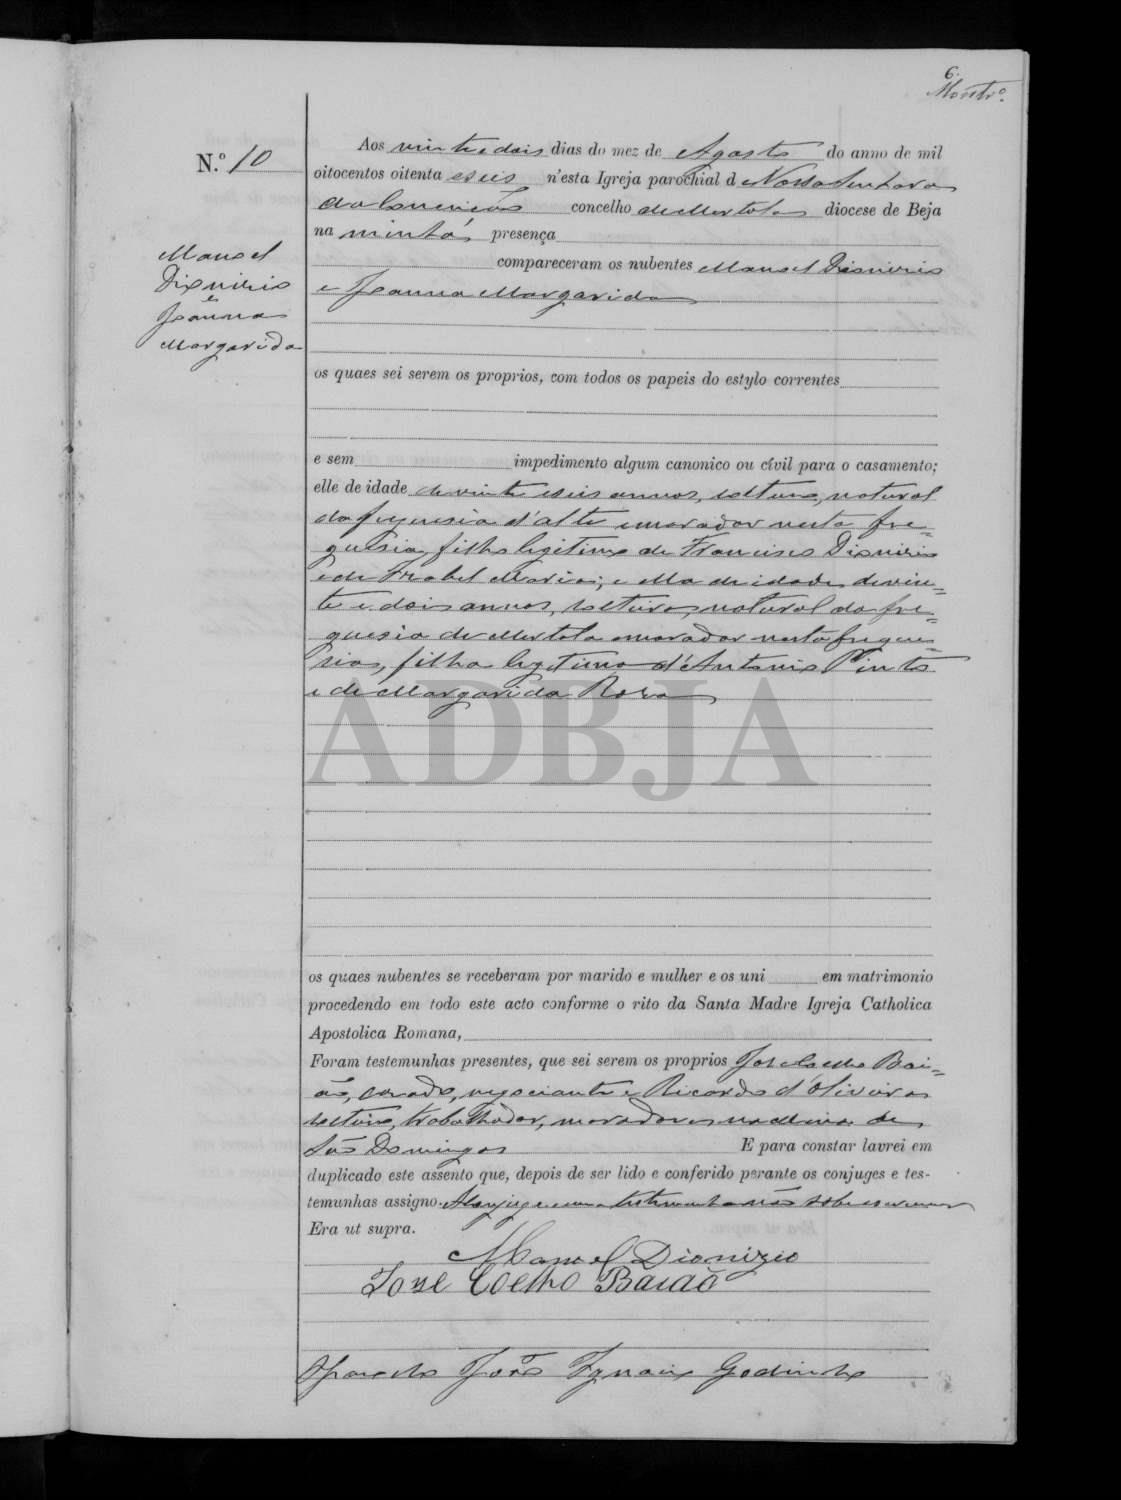 6.
Montrº.
N.º 10
Manoel
Dionizio
e
Joanna
Margarida
Aos vinte e dois dias do mez de Agosto do anno de mil
oitocentos oitenta e seis n'esta Igreja parochial d Nossa Senhora
da Conceição concelho de Mertola diocese de Beja
na minha presença
compareceram os nubentes Manoel Dionizio
e Joanna Margarida
os quaes sei serem os proprios, com todos os papeis do estylo correntes
e sem impedimento algum canonico ou civil para o casamento;
elle de idade de vinte e seis annos, solteiro, natural
da freguesia d'Alte e morador nesta fre=
guesia, filho legitimo de Francisco Dionizio
e de Izabel Maria; e ella de idade de vin=
te e dois annos, solteira, natural da fre=
guesia de Mertola e moradora nesta fregue=
sia, filha legitima d'Antonio Pinto
e de Margarida Roza
ADBJA
os quaes nubentes se receberam por marido e mulher e os uni em matrimonio
procedendo em todo este acto conforme o rito da Santa Madre Igreja Catholica
Apostolica Romana,
Foram testemunhas presentes, que sei serem os proprios José Coelho Bai=
ão, casado, negociante e Ricardo d'Oliveira
solteiro, trabalhador, moradores na Mina de
São Domingos E para constar lavrei em
duplicado este assento que, depois de ser lido e conferido perante os conjuges e tes-
temunhas assigno. A conjuge e uma testemunha não sabem escrever
Era ut supra.
Manoel Dionizio
José Coelho Baião
O Parocho João Ignacio Godinho